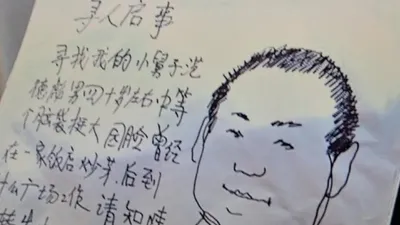 寻人启事
寻找我的小舅子冼
德彪男四十岁左右中等
个脑袋挺大国脸曾经
在一家饭店炒菜后到
什么广场工作请知情